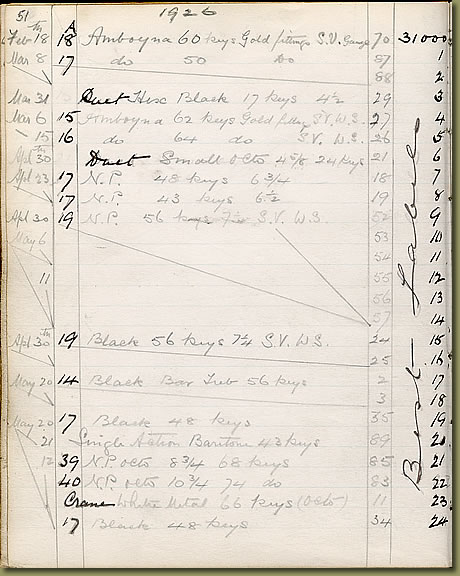 51 1926
A
Feb 18th 18 Amboyna 60 keys Gold fittings S.V. 70 31000
Mar 8 17 do 50 do 87 1
88 2
Mar 31 Duet Hex Black 17 keys 4½ 29 3
Mar 6 15 Amboyna 62 keys Gold S.V. W.S. 27 4
" 15 16 do 64 do S.V. W.S. 26 5
Apl 30th Duet Small Octo 4⅝ 24 keys 21 6
Apl 23 17 N.P. 48 keys 6¾ 18 7
17 N.P. 43 keys 6½ 19 8
Apl 30 19 N.P. 56 keys 7½ S.V. W.S. 52 9
May 6 53 10
54 11
11 55 12
56 13
57 14
Apl 30th 19 Black 56 keys 7¼ S.V. W.S. 24 15
25 16
May 20 14 Black Bar Treb 56 keys 2 17
3 18
May 20 17 Black 48 keys 35 19
21 Single Action Baritone 43 keys 89 20
12 39 N.P. octo 8¾ 68 keys 85 21
40 N.P. octo 10¾ 74 do 83 22
Crane White Metal 66 keys (Octo) 11 23
17 Black 48 keys 34 24
Best Labels